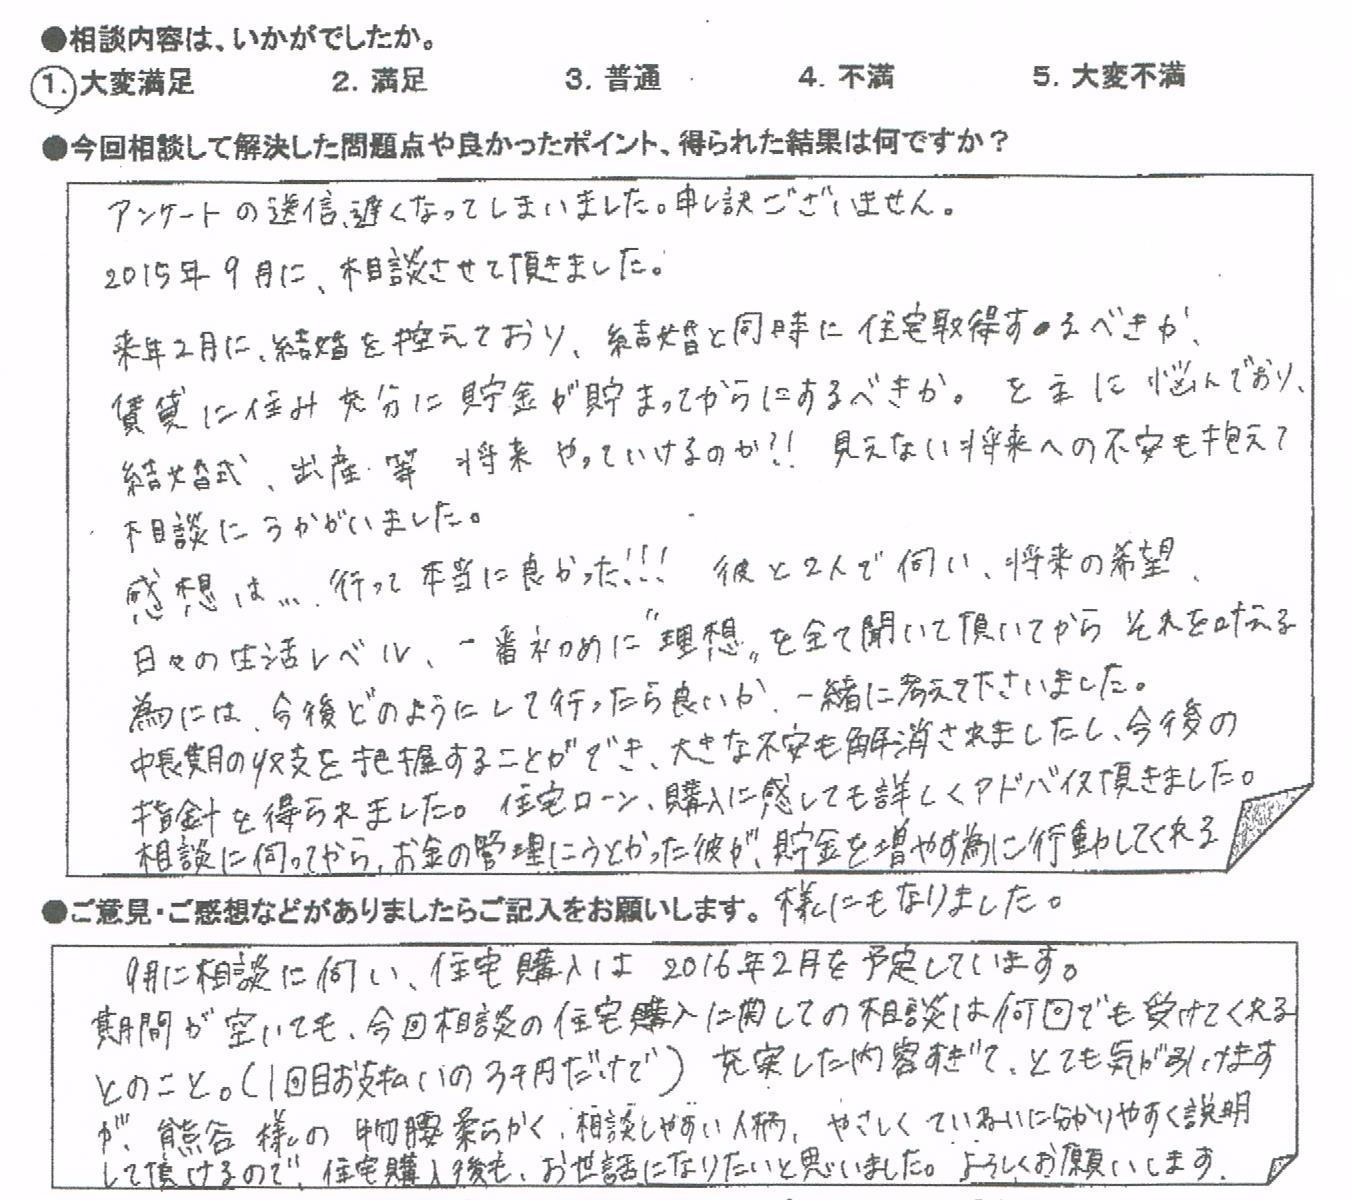 ●相談内容は、いかがでしたか。
1. 大変満足 2. 満足 3. 普通 4. 不満 5. 大変不満
●今回相談して解決した問題点や良かったポイント、得られた結果は何ですか？
アンケートの送信、遅くなってしまいました。申し訳ございません。
2015年9月に、相談させて頂きました。
来年2月に、結婚を控えており、結婚と同時に住宅取得するべきか、
賃貸に住み充分に貯金が貯まってからにするべきか。を主に悩んでおり、
結婚式、出産 等 将来やっていけるのか?!! 見えない将来への不安も抱えて
相談にうかがいました。
感想は… 行って本当に良かった!!! 彼と2人で伺い、将来の希望、
日々の生活レベル、一番初めに"理想"を全て聞いて頂いてから それを叶える
為には、今後どのようにして行ったら良いか、一緒に考えて下さいました。
中長期の収支を把握することができ、大きな不安も解消されましたし、今後の
指針を得られました。住宅ローン、購入に感しても詳しくアドバイス頂きました。
相談に伺ってから、お金の管理にうとかった彼が、貯金を増やす為に行動してくれる
様にもなりました。
●ご意見・ご感想などがありましたらご記入をお願いします。
9月に相談に伺い、住宅購入は 2016年2月を予定しています。
期間が空いても、今回相談の住宅購入に関しての相談は何回でも受けてくれる
とのこと。(1回目お支払いの3千円だけで) 充実した内容すぎて、とても気が引けます
が、熊谷様の物腰柔らかく、相談しやすい人柄、やさしくていねいに分かりやすく説明
して頂けるので、住宅購入後も、お世話になりたいと思いました。よろしくお願いします。